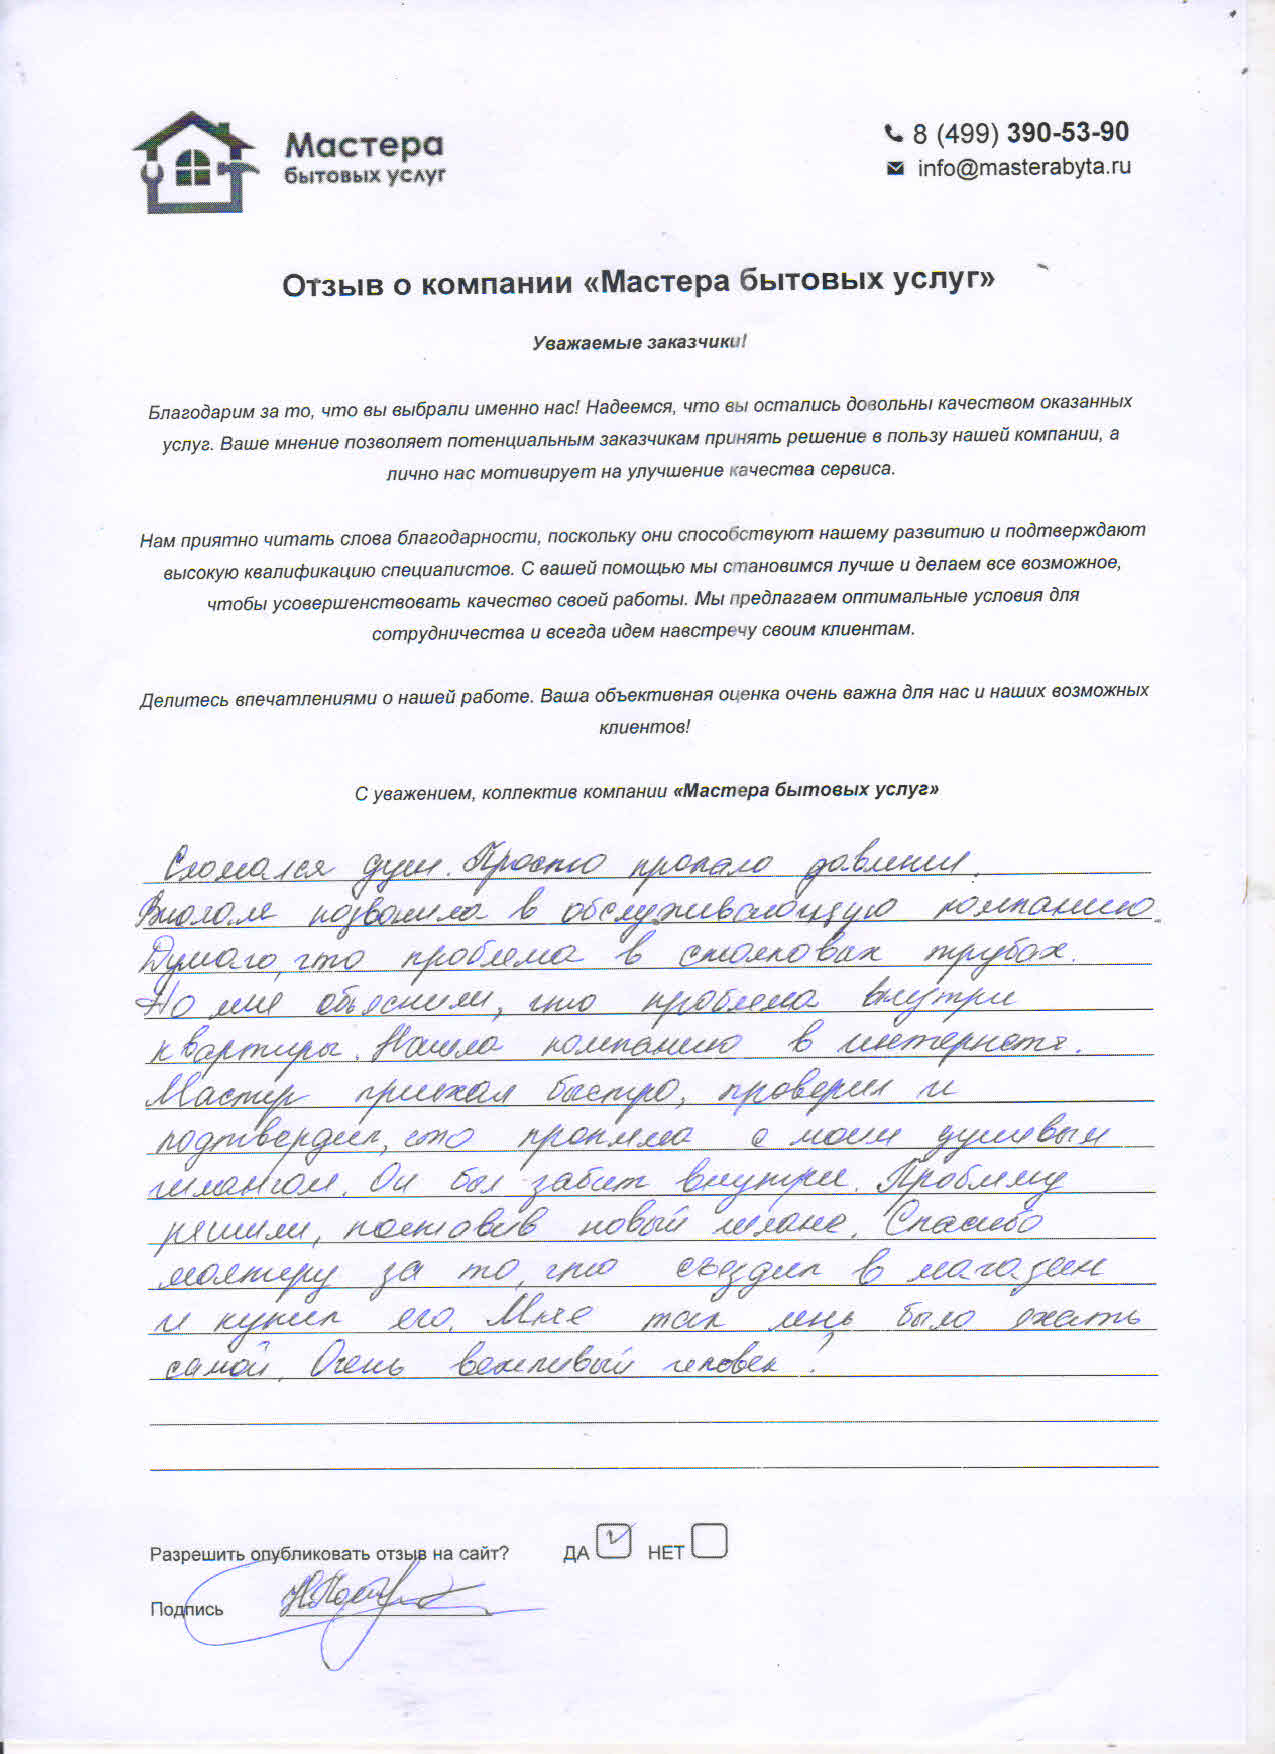 Мастера
бытовых услуг
8 (499) 390-53-90
info@masterabyta.ru
Отзыв о компании «Мастера бытовых услуг»
Уважаемые заказчики!
Благодарим за то, что вы выбрали именно нас! Надеемся, что вы остались довольны качеством оказанных
услуг. Ваше мнение позволяет потенциальным заказчикам принять решение в пользу нашей компании, а
лично нас мотивирует на улучшение качества сервиса.
Нам приятно читать слова благодарности, поскольку они способствуют нашему развитию и подтверждают
высокую квалификацию специалистов. С вашей помощью мы становимся лучше и делаем все возможное,
чтобы усовершенствовать качество своей работы. Мы предлагаем оптимальные условия для
сотрудничества и всегда идем навстречу своим клиентам.
Делитесь впечатлениями о нашей работе. Ваша объективная оценка очень важна для нас и наших возможных
клиентов!
С уважением, коллектив компании «Мастера бытовых услуг»
Сломался душ. Просто пропало давление.
Вначале позвонила в обслуживающую компанию.
Думаю, что проблема в стояковых трубах.
Но мне объяснили, что проблема внутри
квартиры. Нашла компанию в интернете.
Мастер приехал быстро, проверил и
подтвердил, что проблема с моим душевым
шлангом. Он был забит внутри. Проблему
решили, поставив новый шланг. Спасибо
мастеру за то, что съездил в магазин
и купил его. Мне так лень было ехать
самой. Очень вежливый человек!
Разрешить опубликовать отзыв на сайт? ДА НЕТ
Подпись